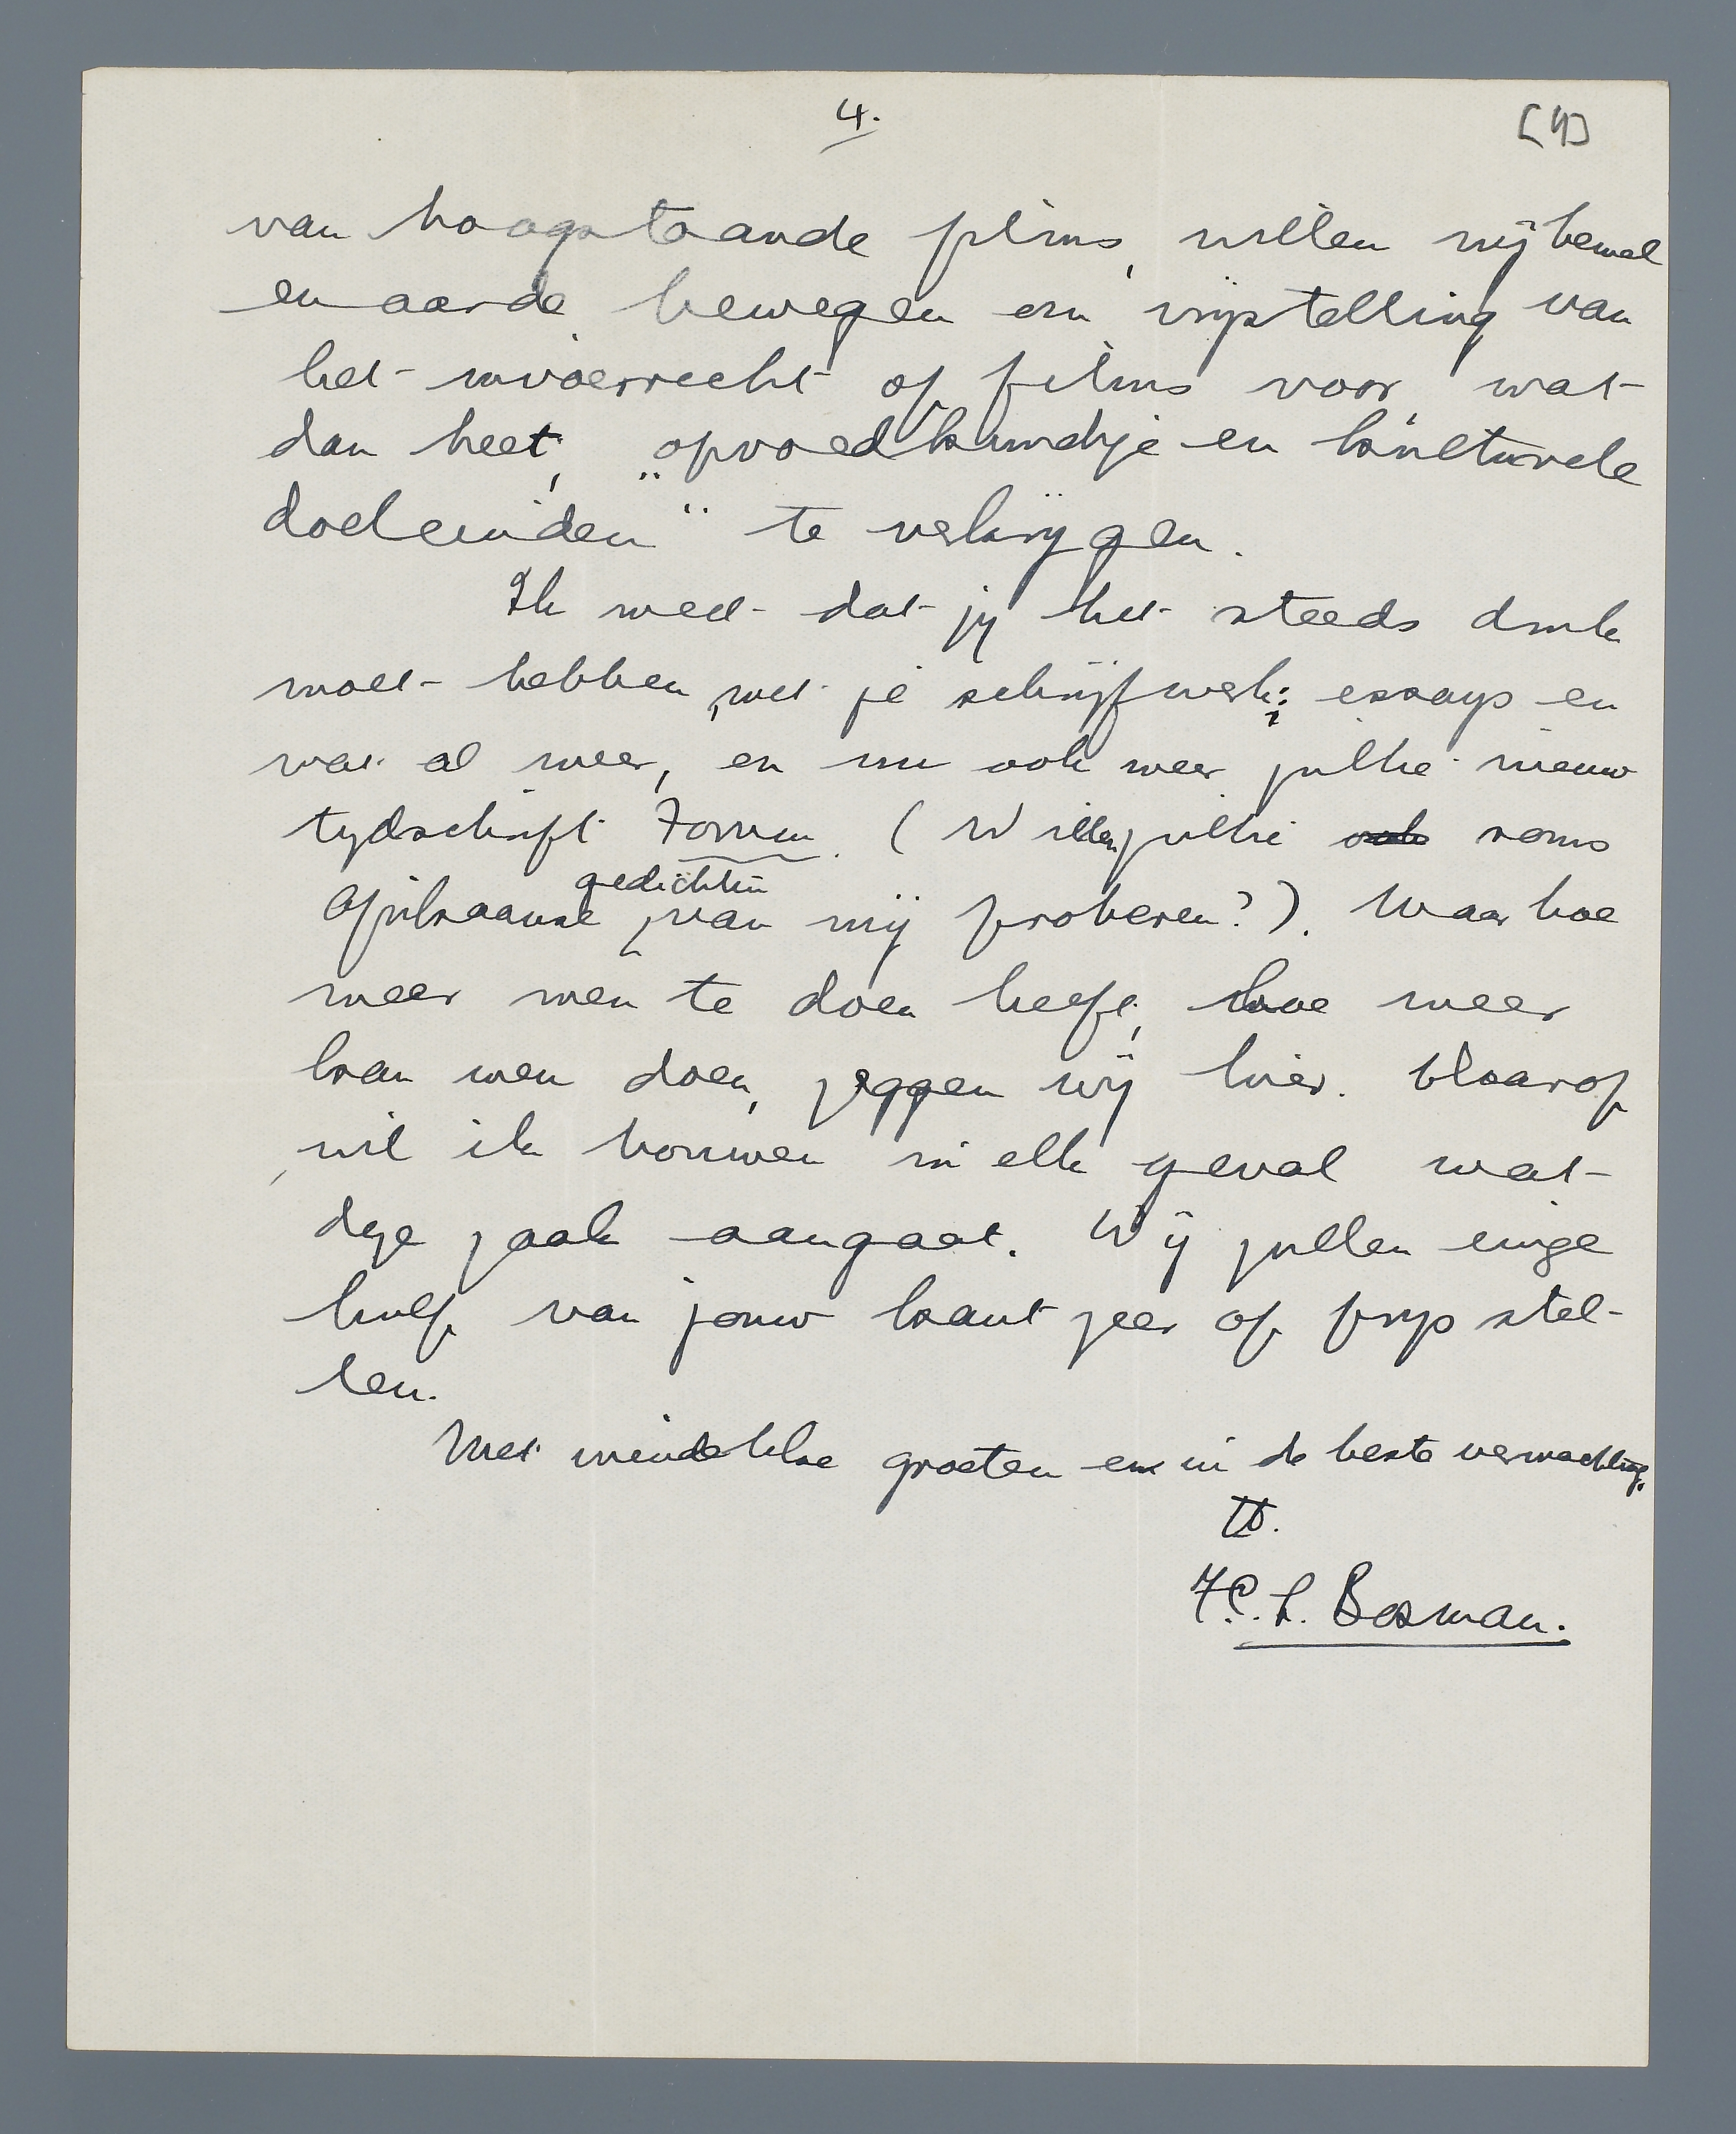 4.
[4]
van hoogstaande films, willen wij hemel
en aarde bewegen om vrijstelling van
het invoerrecht op films voor, wat
dan heet, „opvoedkundige en kulturele
doeleinden" te verkrijgen.
Ik weet dat jij het steeds druk
moet hebben, met je schrijfwerk; essays en
wat al meer, en nu ook weer jullie nieuw
tijdschrift Forum. (Willen jullie ook soms
gedichten
Afrikaanse van mij proberen?). Maar hoe
meer men te doen heeft, hoe meer
kan men doen, zeggen wij hier. Daarop
wil ik bouwen in elk geval wat
deze zaak aangaat. Wij zullen enige
hulp van jouw kant zeer op prijs stel-
len.
Met vriendelike groeten en in de beste verwachting,
tt.
F.C.L. Bosman.